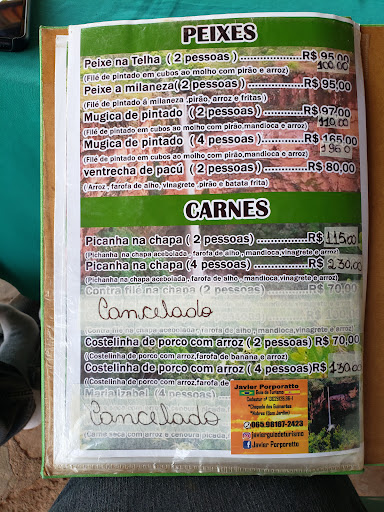 PEIXES
Peixe na Telha ( 2 pessoas ) ................R$ 95,00
100,00
(Filé de pintado em cubos ao molho com pirão e arroz)
Peixe a milaneza(2 pessoas) ..............R$ 95,00
(Filé de pintado á milaneza ,pirão, arroz e fritas )
Mugica de pintado ( 2 pessoas) ........R$ 97,00
110,00
(Filé de pintado em cubos ao molho com pirão,mandioca e arroz)
Mugica de pintado ( 4 pessoas) ......R$ 165,00
(Filé de pintado em cubos ao molho com pirão,mandioca e arroz)
ventrecha de pacú ( 2 pessoas).........R$ 80,00
( Arroz , farofa de alho, vinagrete ,pirão e batata frita)
CARNES
Picanha na chapa ( 2 pessoas) .............R$ 115,00
(Pichanha na chapa acebolada , farofa de alho, mandioca,vinagrete e arroz)
Picanha na chapa (4 pessoas) .............R$ 230,00
(Pichanha na chapa acebolada , farofa de alho, mandioca,vinagrete e arroz)
Contra filé na chapa (2 pessoas)
Cancelado
acebolada , farofa de alho, mandioca,vinagrete e arroz)
Costelinha de porco com arroz ( 2 pessoas) R$ 70,00
(Costelinha de porco com arroz,farofa de banana e arroz)
Costelinha de porco com arroz( 4 pessoas)R$ 130,00
(Costelinha de porco com arroz,farofa de
Maria Izabel (4 pessoas)
Cancelado
(Carne seca com arroz e cenoura picada,
Javier Porporatto
Guia de Turismo
*Chapada dos Guimarães
*Nobres (Bom Jardim)
065 98167-2423
@javierguiadeturismo
Javier Porporatto